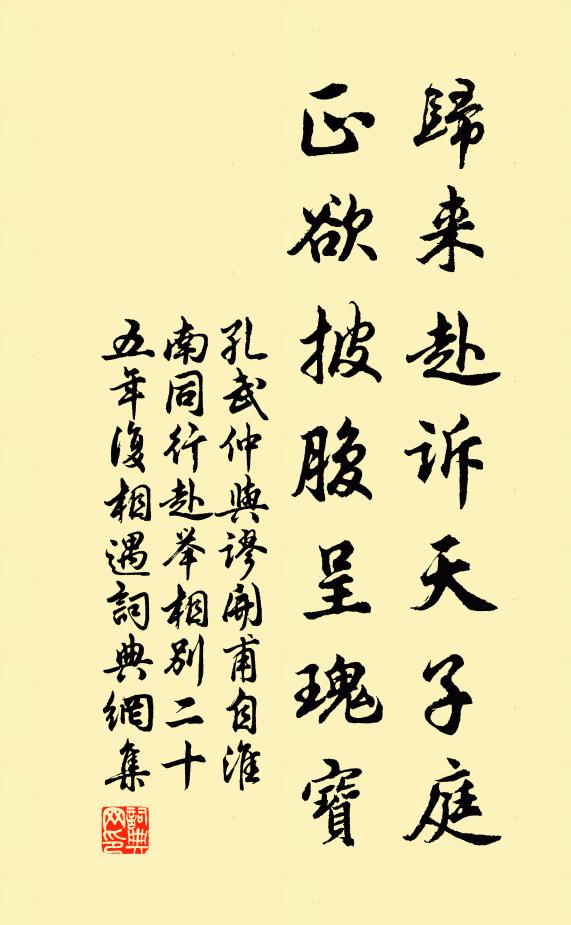 歸来赴诉天子庭
正欲披腹呈瑰寶
孔武仲與謬開甫自淮
南同行赴举相別二十
五年復相遇詞典網集
詞典網印